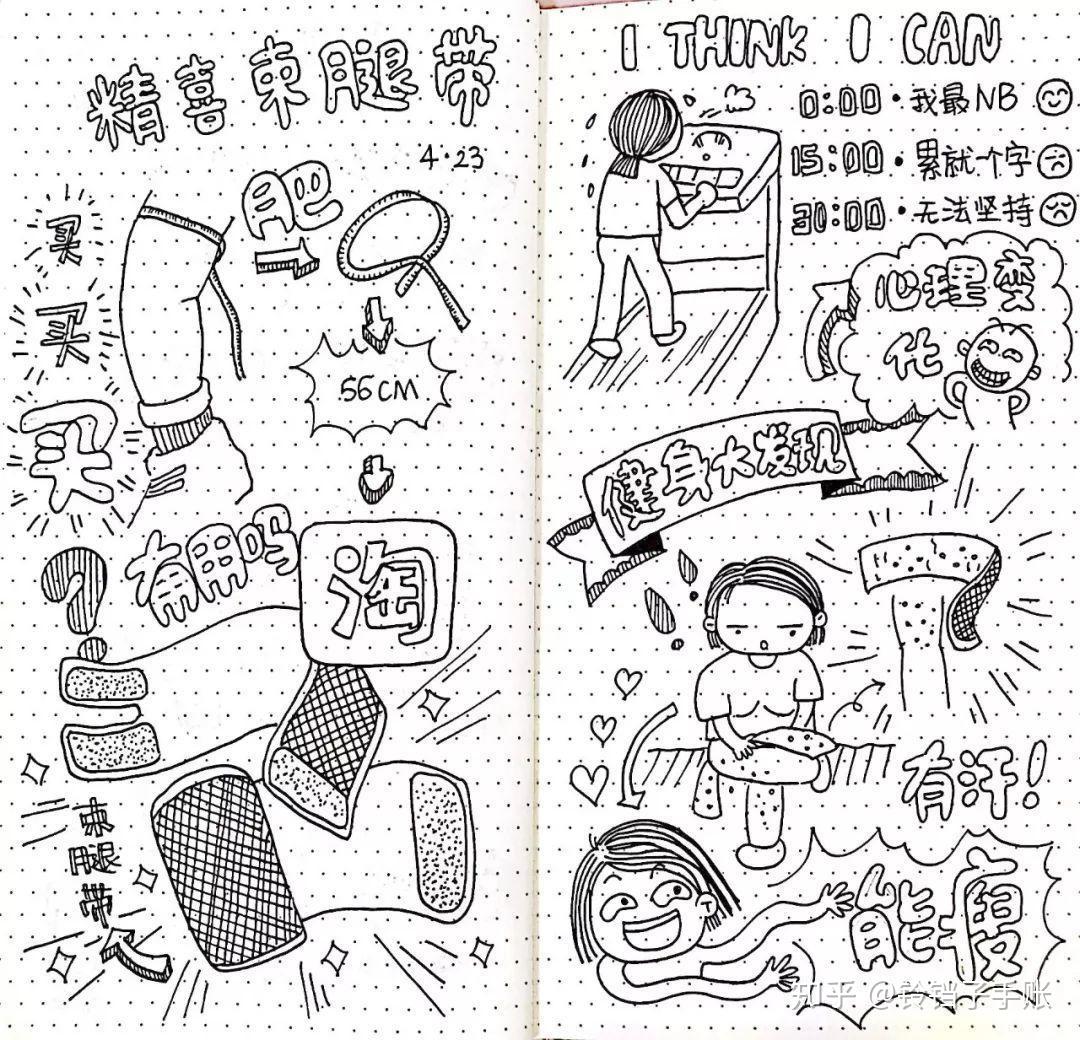 精喜束腿带
4·23
买
买
买
肥
56CM
有用吗
淘
束
腿
带
I THINK I CAN
0:00·我最NB
15:00·累就一个字
30:00·无法坚持
心理变
化
健身大发现
有汗!
能瘦
知乎 @铃铛子手账